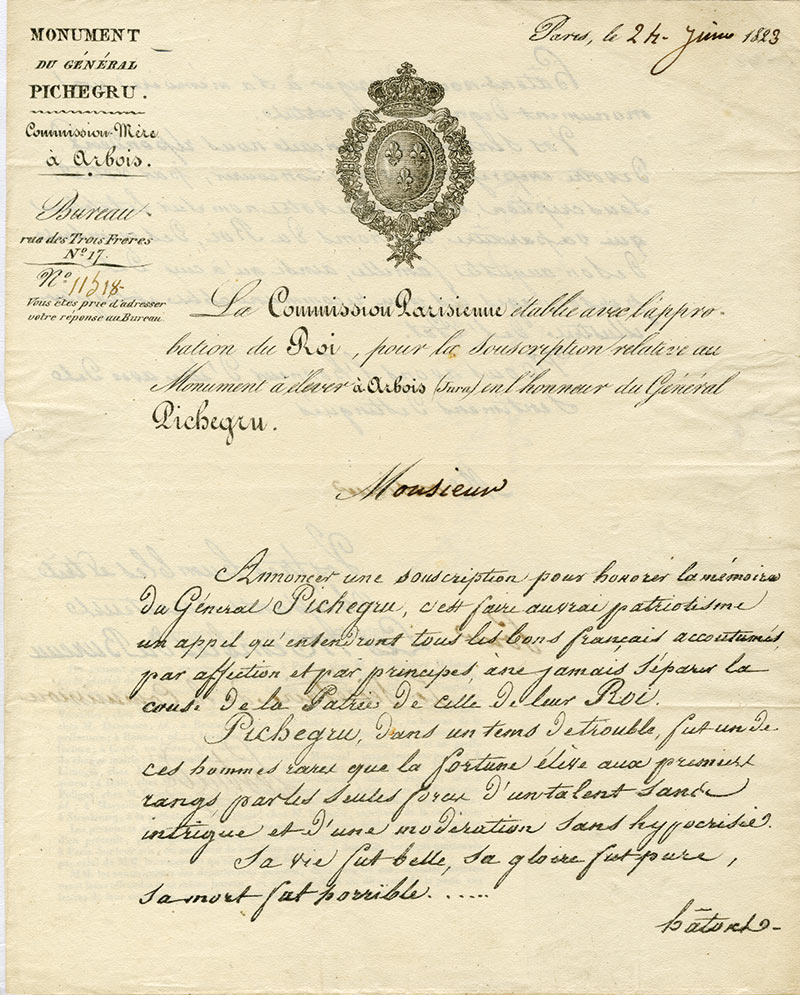 MONUMENT
DU GÉNÉRAL
PICHEGRU.
Commission-Mère
à Arbois.
Bureau
rue des Trois Frères
Nº 17.
Nº 11518
Vous êtes prié d'adresser
votre réponse au Bureau.
Paris, le 24 juin 1823
La Commission Parisienne établie avec l'appro-
bation du Roi, pour la souscription relative au
Monument à élever à Arbois (Jura) en l'honneur du Général
Pichegru.
Monsieur
Annoncer une souscription pour honorer la mémoire
du Général Pichegru, c'est faire au vrai patriotisme
un appel qu'entendront tous les bons français accoutumés,
par affection et par principes, à ne jamais séparer la
cause de la Patrie de celle de leur Roi.
Pichegru, dans un tems de trouble, fut un de
ces hommes rares que la fortune élève aux premiers
rangs par les seules forces d'un talent sans
intrigue et d'une modération sans hypocrisie.
Sa vie fut belle, sa gloire fut pure,
sa mort fut horrible......
hâtons-